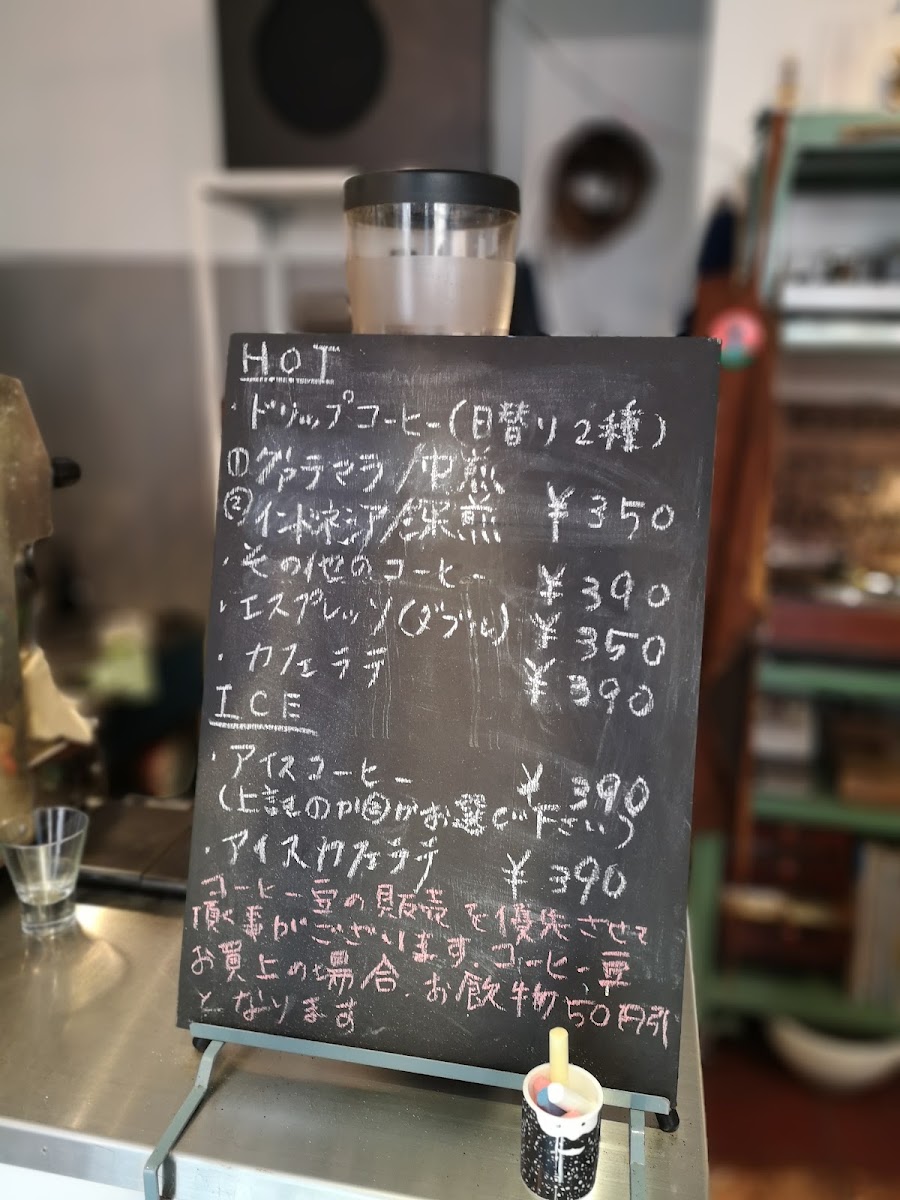 HOT
・ドリップコーヒー(日替り2種)
①グァテマラ/中煎
②インドネシア/深煎 ¥350
・その他のコーヒー ¥390
・エスプレッソ(ダブル) ¥350
・カフェラテ ¥390
ICE
・アイスコーヒー ¥390
(上記のからお選び下さい)
・アイスカフェラテ ¥390
コーヒー豆の販売を優先させて
頂く事がございます。コーヒー豆
お買上の場合、お飲物50円引
となります